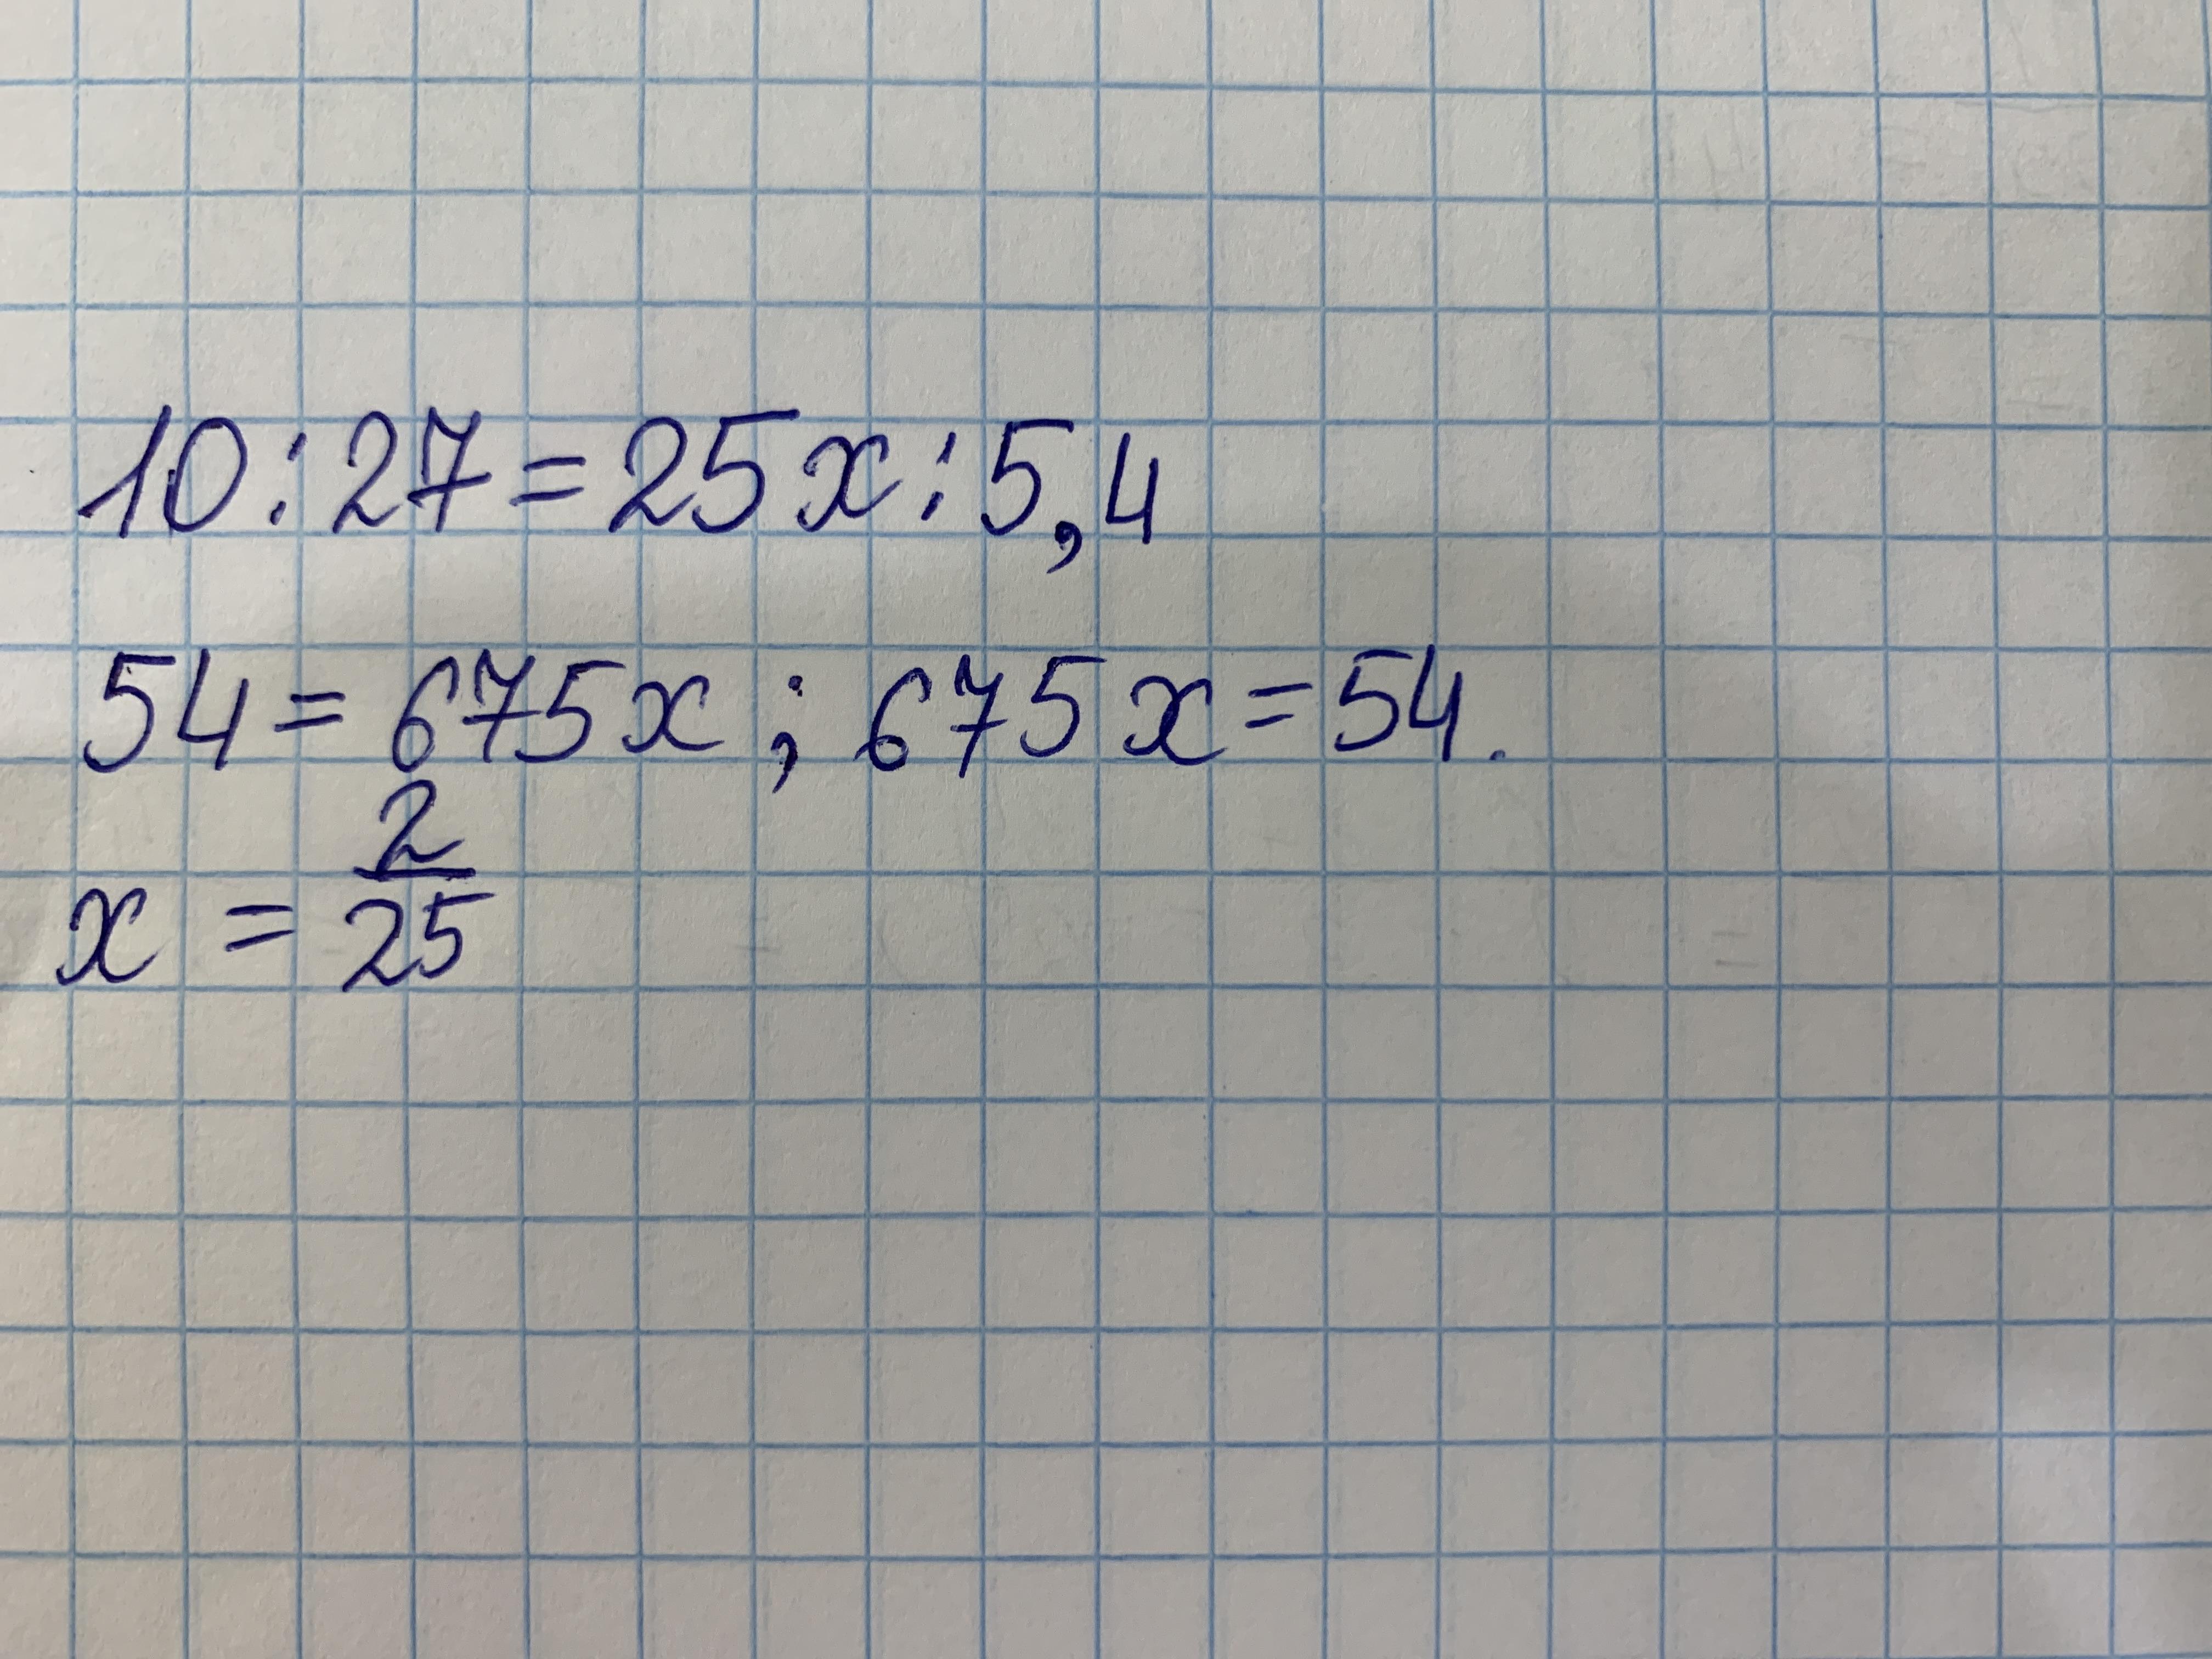 10:27=25x:5,4
54=675x; 675x=54.
x = 2/25